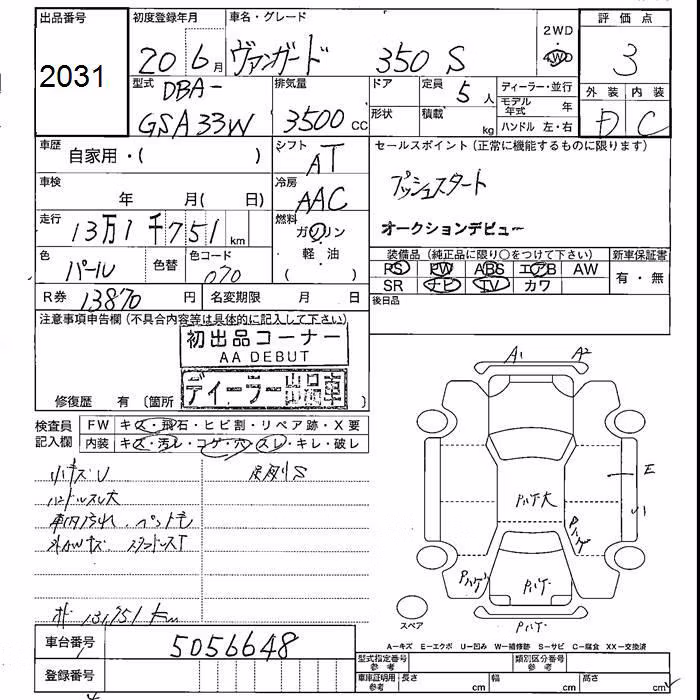 出品番号 初度登録年月 車名・グレード 評価点
2031 20 6月 ヴァンガード 350 S 2WD 4WD 3
型式 DBA- GSA33W 排気量 3500 CC ドア 形状 定員 5人 積載 kg ディーラー・並行 モデル年式 年 ハンドル 左・右 外装 内装 D C
車歴 自家用・( ) シフト AT セールスポイント (正常に機能するものに限ります)
車検 年 月( 日) 冷房 AAC プッシュスタート
走行 13万1千751km 燃料 ガソリン・軽油 ( ) オークションデビュー
色 パール 色替 色コード 070 装備品 (純正品に限り○をつけて下さい) 新車保証書
PS PW ABS エアB AW 有・無
SR ナビ TV カワ
R券 13870円 名変期限 月 日 後日品
注意事項申告欄 (不具合内容等は具体的に記入して下さい)
初出品コーナー
AA DEBUT
ディーラー出品車
修復歴 有 〔箇所
検査員記入欄 FW キズ・飛石・ヒビ割・リペア跡・X要
内装 キズ・汚レ・コゲ・穴・スレ・キレ・破レ
小キズU
ハンドルスレ大
車内汚れ
外AWキズ
131751km
車台番号 5056648
登録番号
A1 A2
E
U1
Pハゲ大
Pハゲ
Pハゲ
Pハゲ
Pハゲ
スペア
A-キズ E-エクボ U-凹み W-補修跡 S-サビ C-腐食 XX-交換済
型式指定番号 参考 類別区分番号 参考
車庫証明用 参考 長さ cm 幅 cm 高さ cm